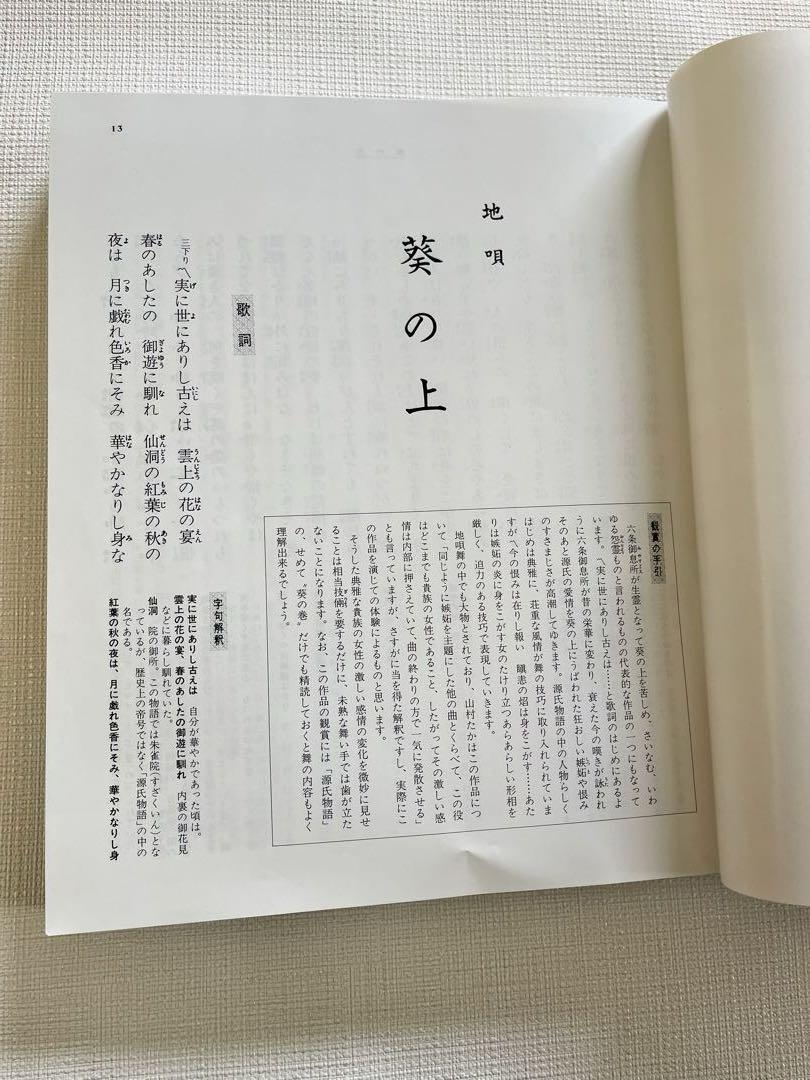 13
地唄
葵の上
観賞の手引
六条御息所が生霊となって葵の上を苦しめ、さいなむ、いわ
ゆる怨霊ものと言われるものの代表的な作品の一つにもなって
います。〽実に世にありし古えは……と歌詞のはじめにあるよ
うに六条御息所が昔の栄華に変わり、衰えた今の嘆きが詠われ
そのあと源氏の愛情を葵の上にうばわれた狂おしい嫉妬や恨み
のすさまじさが高潮してゆきます。源氏物語の中の人物らしく
はじめは典雅に、荘重な風情が舞の技巧に取り入れられていま
すが〽今の恨みは在りし報い 瞋恚の焰は身をこがす……あた
りは嫉妬の炎に身をこがす女のたけり立つあらあらしい形相を
厳しく、迫力のある技巧で表現していきます。
地唄舞の中でも大物とされており、山村たかはこの作品につ
いて「同じように嫉妬を主題にした他の曲とくらべて、この役
はどこまでも貴族の女性であること、したがってその激しい感
情は内部に押さえていて、曲の終わりの方で一気に発散させる」
とも言っていますが、さすがに当を得た解釈ですし、実際にこ
の作品を演じての体験によるものと思います。
そうした典雅な貴族の女性の激しい感情の変化を微妙に見せ
ることは相当技倆を要するだけに、未熟な舞い手では歯が立た
ないことになります。なお、この作品の観賞には「源氏物語」
の、せめて〝葵の巻〟だけでも精読しておくと舞の内容もよく
理解出来るでしょう。
歌詞
三下り〽実に世にありし古えは 雲上の花の宴
春のあしたの 御遊に馴れ 仙洞の紅葉の秋の
夜は 月に戯れ色香にそみ 華やかなりし身な
字句解釈
実に世にありし古えは 自分が華やかであった頃は。
雲上の花の宴、春のあしたの御遊に馴れ 内裏の御花見
などに暮らし馴れていた。
仙洞 院の御所。この物語では朱雀院(すざくいん)とな
っているが、歴史上の帝号ではなく「源氏物語」の中の
名である。
紅葉の秋の夜は、月に戯れ色香にそみ、華やかなりし身